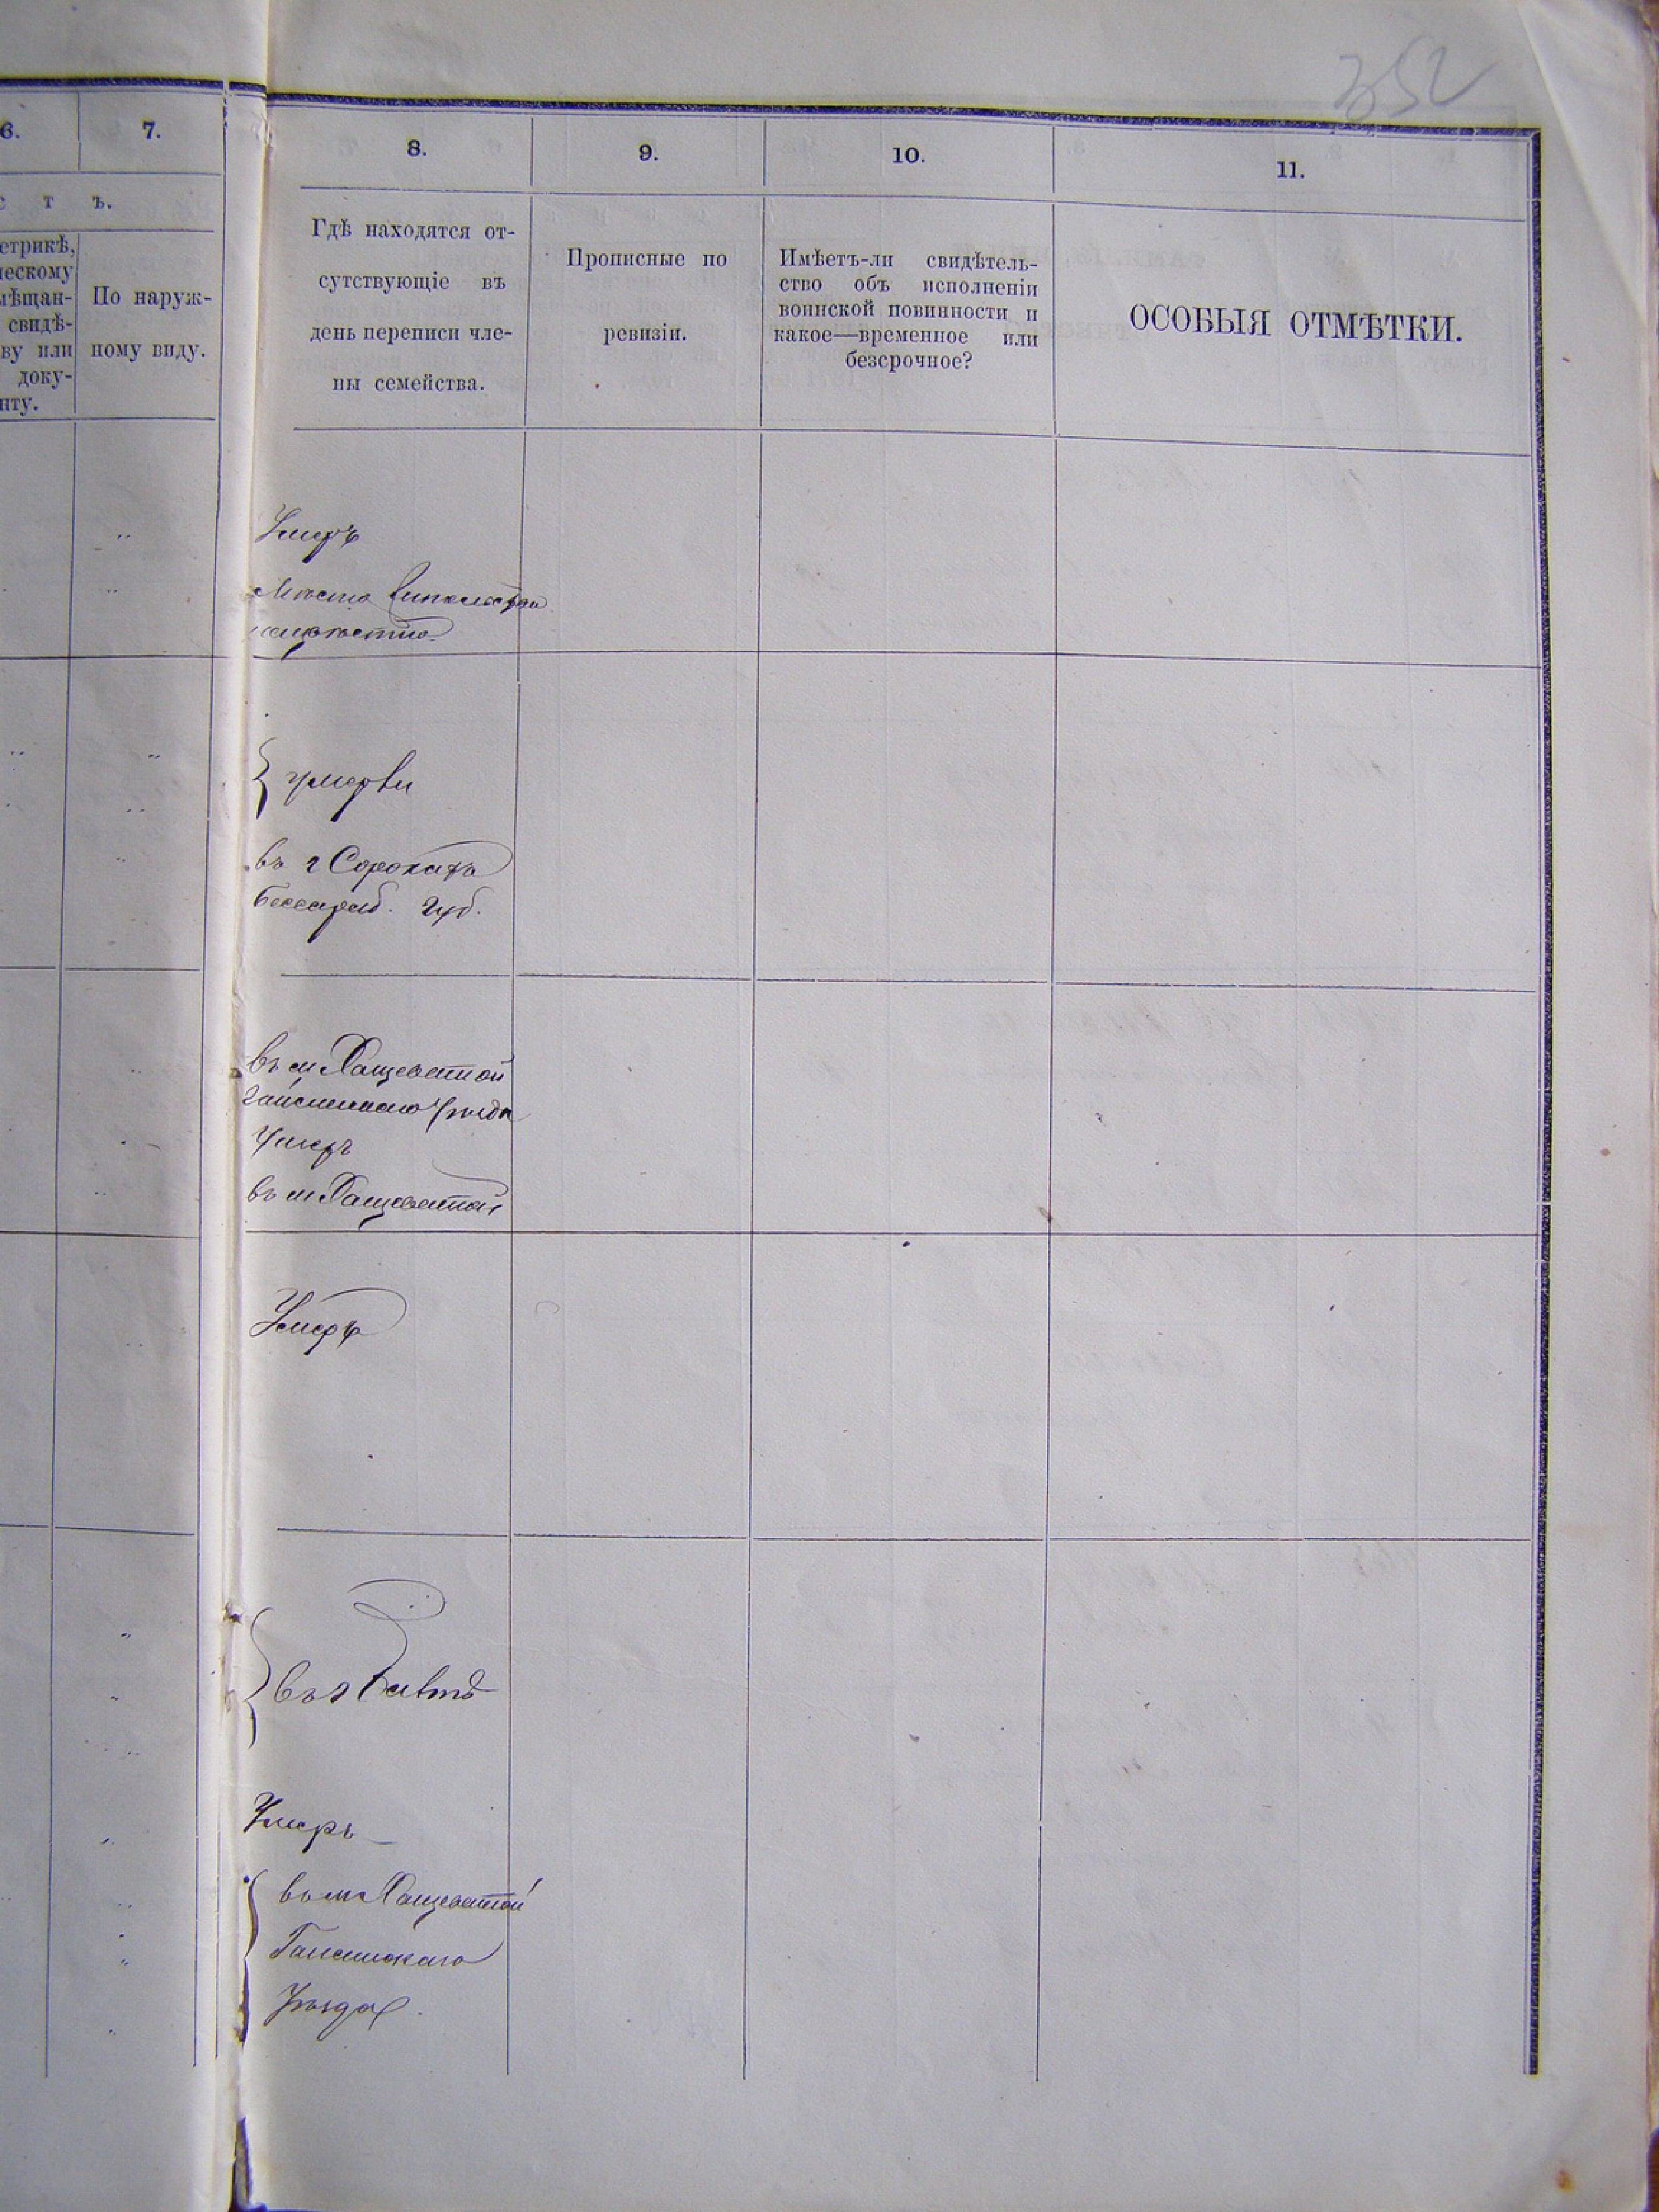 352
6.
7.
8.
9.
10.
11.
с т ъ.
етрикѣ,
ческому
мѣщан-
свидѣ-
ву или
доку-
нту.
По наруж-
ному виду.
Гдѣ находятся от-
сутствующіе въ
день переписи чле-
ны семейства.
Прописные по
ревизіи.
Имѣетъ-ли свидѣтель-
ство объ исполненіи
воинской повинности и
какое—временное или
безсрочное?
ОСОБЫЯ ОТМѢТКИ.
Умеръ
Мѣсто
умерли
въ г Сорокахъ
Бессараб. Губ.
въ м Хащеватой
Гайсинскаго Уѣзда
Умеръ
въ м Хащеватой
Умеръ
въ г Балтѣ
Умеръ
въ м Хащеватой
Гайсинскаго
Уѣзда